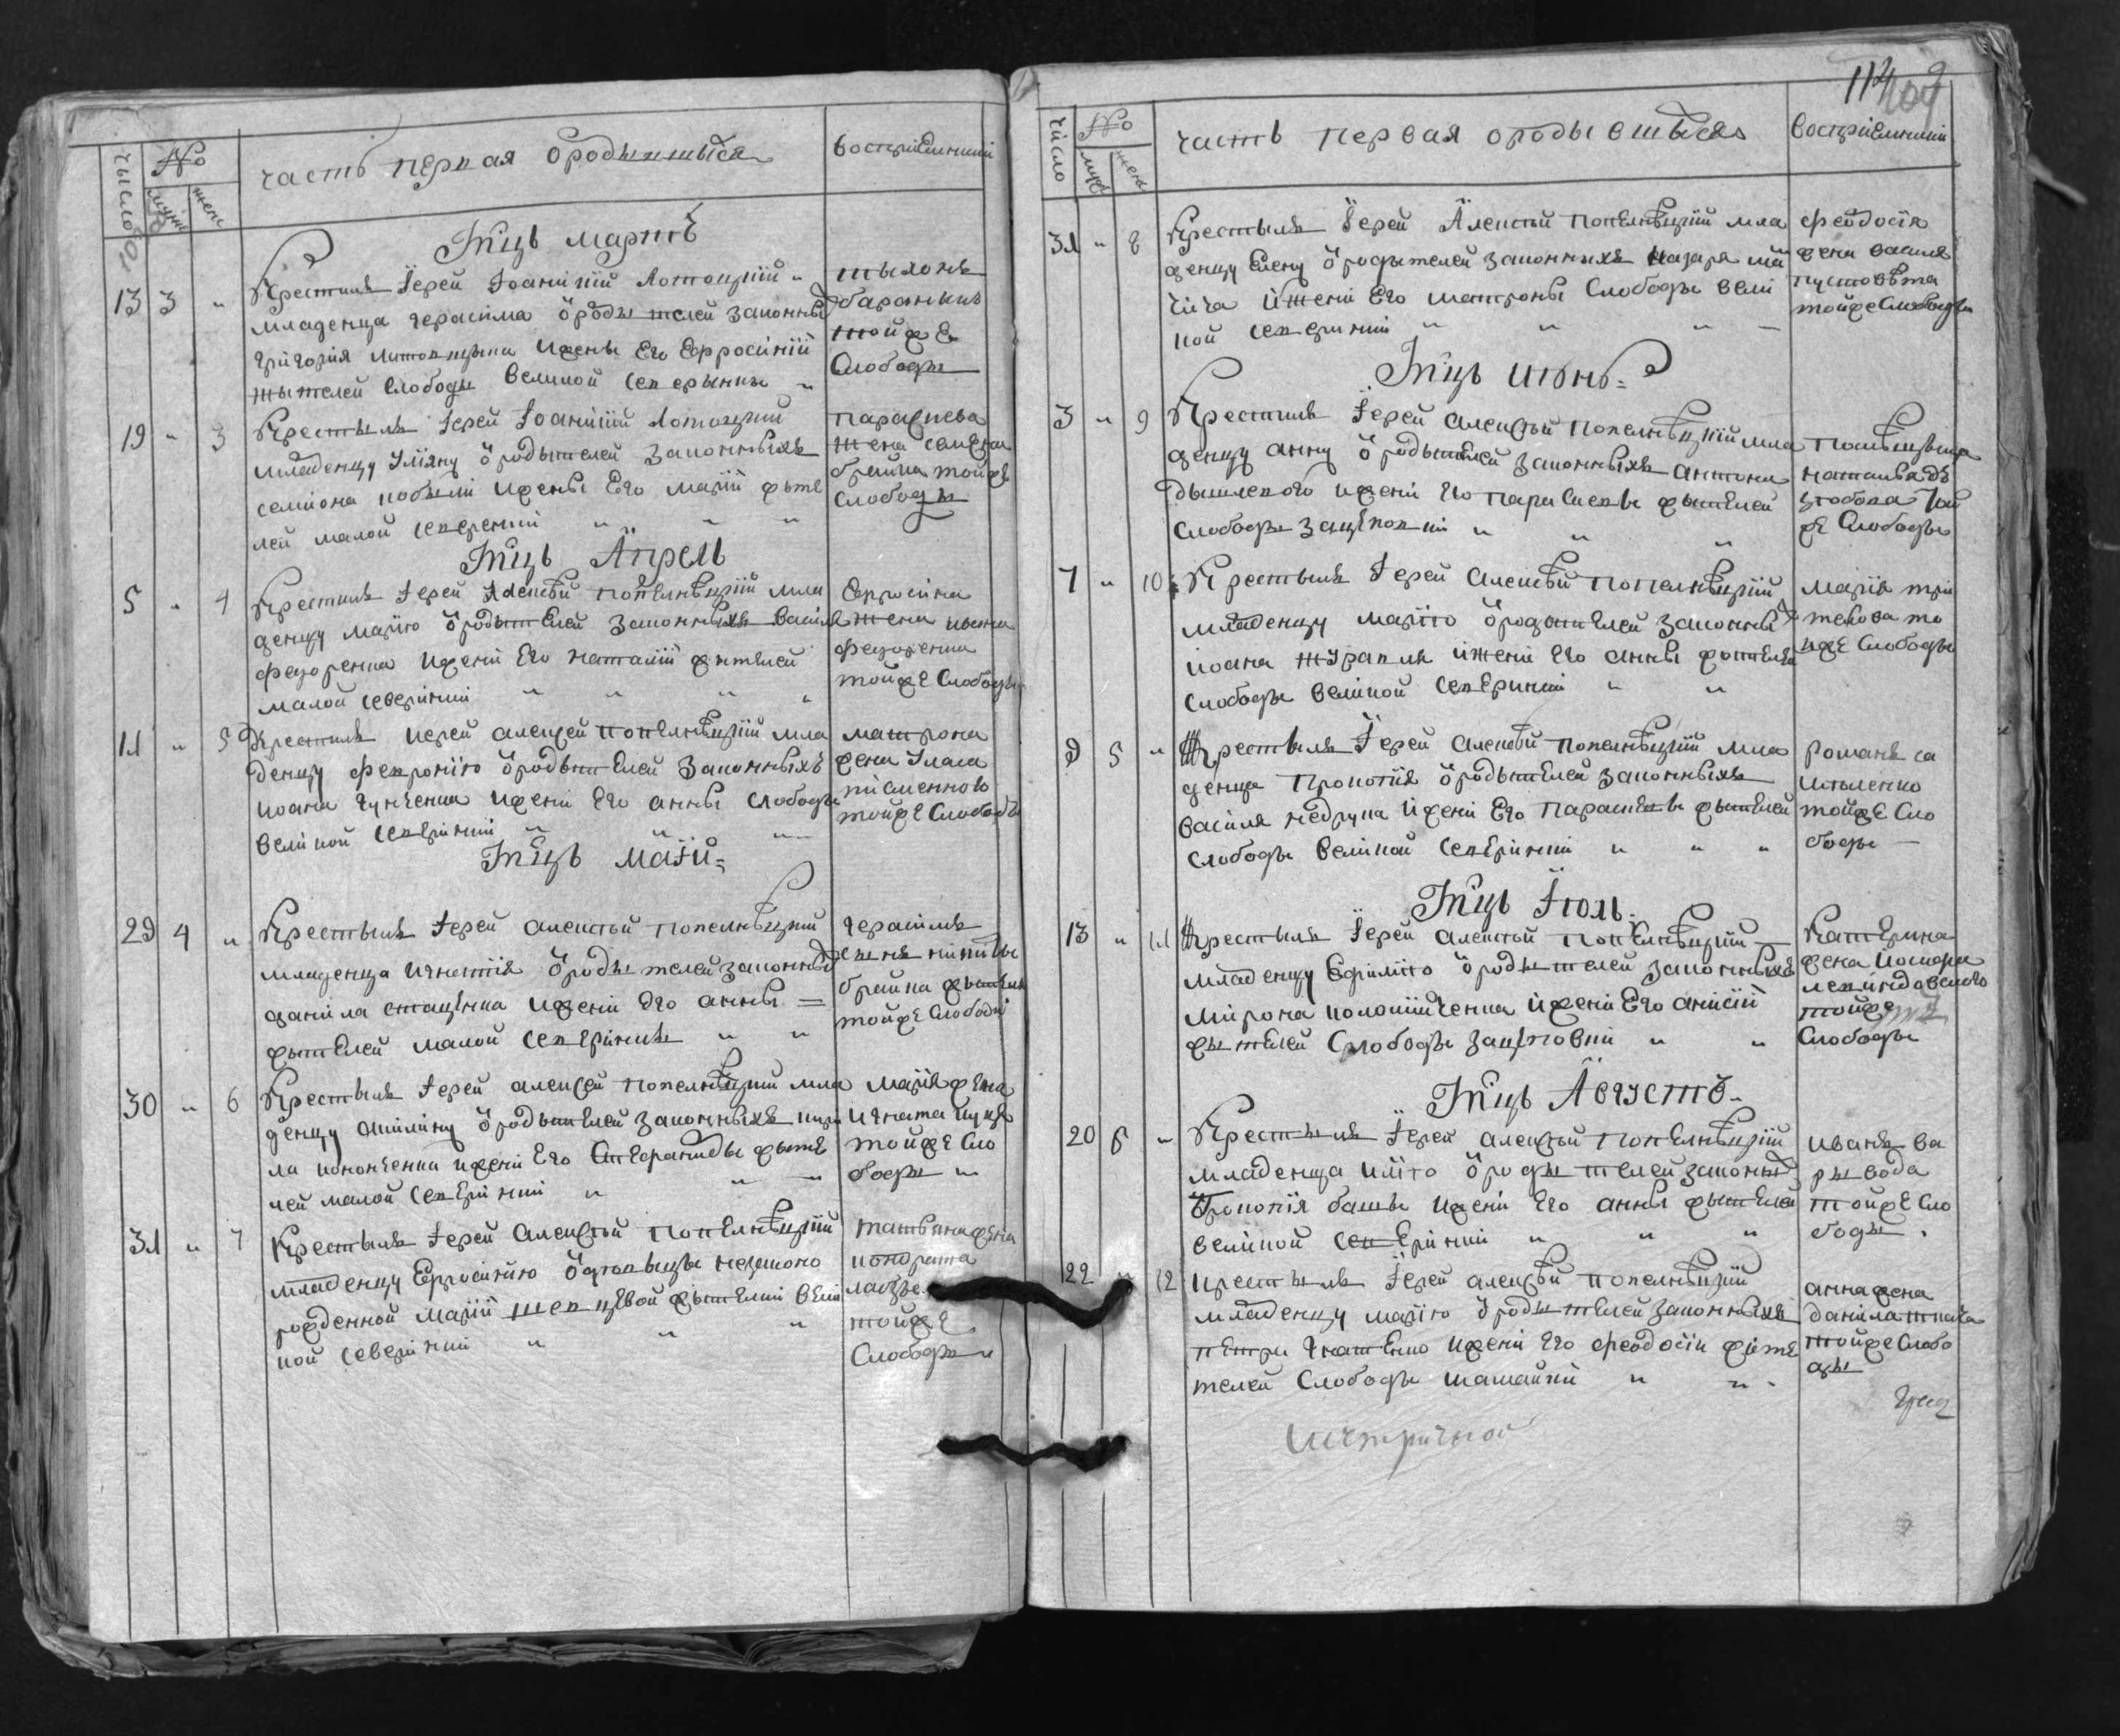 число № муж жен часть первая ородывшыся восприемники
Мцъ мартъ
13 3 " Крестилъ Іерей Іоанікій Лотоцкій "
младенца герасима ѿ родытелей законных
григорія литовцына ижены Его Ефросиніи
жытелей слободы великой северынки "
тыхонъ
баранник
тойже
слободы
19 " 3 Крестылъ Іерей Іоанікій Лотоцкий
младенцу Уліяну ѿ родытелей законныхъ
семіона кобыли ижены Его маріи жыте
лей малой северинки " " "
параскева
жена семена
брайка тойже
слободы
Мцъ Апрель
5 " 4 Крестилъ Іерей Алексѣй попелнѣцкій мла
денцу марію ѿ родытелей законныхъ васіля
федоренка ижені Его наталіи жителей
малой северінки " " " "
Ефросина
жена ивана
федоренка
тойже слободы
11 " 5 Крестилъ иерей алексей попелнѣцкій мла
денцу февронію ѿ родытелей законныхъ
иоана гунченка ижені Его анны слободы
великой северінки " " "
матрона
жена Улася
писменного
тойже слободы
Мцъ маій =
29 4 " Крестылъ Іерей алексѣй попелнѣцкий
младенца игнатія ѿ родытелей законных
даніила стаценка ижені Его анны =
жытелей малой северінки " "
герасимъ
сынъ никиты
брайка жытель
тойже слободы
30 " 6 Крестылъ Іерей алексей попелнѣцкий мла
денцу акилину ѿ родытелей законныхъ кири
ла кононенка ижені Его стефаниды жыте
лей малой северінки " " "
марія жена
игната куца
тойже сло
боды "
31 " 7 Крестылъ Іерей Алексѣй попелнѣцкій
младенцу Ефросинію ѿ дѣвыцы незаконо
рожденной маріи шевцѣвой жытелки вели
кой северінки " " "
татьяна жена
кондрата
тойже
Слободы "
114 109
число № муж жена часть первая ородывшыся восприемники
31 " 8 Крестылъ Іерей Алексѣй попелнѣцкій мла
денцу Елену ѿ родытелей законныхъ назаря ма
ижені Его матроны слободы вели
кой северинки " " " —
феодосія
жена василя
пустовѣта
тойже слободы
Мцъ июнь =
3 " 9 Крестилъ Іерей алексѣй попелнѣцкій мла
денцу анну ѿ родытелей законныхъ антона
дышлевого ижені Его параскевы жытелей
слободы зацеповки " " "
помѣщыца
той
же слободы
7 " 10 Крестылъ Іерей алексѣй попелнѣцкій
младенцу марію ѿ родытелей законных
иоана журавля ижені Его анны жытелей
слободы великой северинки " "
марія
то
йже слободы
9 5 " Крестылъ Іерей алексѣй попелнѣцкий мла
денца прокопія ѿ родытелей законныхъ
василя недрука ижені Его параскевы жытелей
слободы великой северінки " " "
романъ са
тойже сло
боды —
Мцъ Іюль
13 " 11 Крестылъ Іерей алексѣй попелнѣцкій —
младенцу Ефимію ѿ родытелей законныхъ
мирона коломійченка ижені Его анисіи
жытелей слободы зацеповки " "
Катерина
жена
тойже
слободы
Мцъ Августъ -
20 6 " Крестылъ Іерей алексѣй попелнѣцкій
младенца илію ѿ родытелей законных
прокопія башы ижені Его анны жытелей
великой северінки " " "
иванъ ва
рывода
тойже сло
боды .
22 " 12 крестылъ Іерей алексѣй попелнѣцкій
младенцу марію ѿ родытелей законныхъ
петра ижені Его феодосіи жите
телей слободы " " -
анна жена
данила ткача
тойже слобо
ды